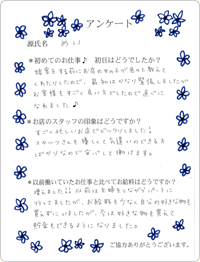 アンケート
源氏名 めい
*初めてのお仕事♪ 初日はどうでしたか?
接客をする前にお店の女の子が色々と教えて
くれたりしたので、最初はかなり緊張しましたが
お客様もすごく良い方でしたので逆に
なれました♪
*お店のスタッフの印象はどうですか?
すごく忙しいお店でビックリしました!
スタッフさんも優しくて気遣いのできる方
ばかりなので安心して働けます。
*以前働いていたお仕事と比べてお給料はどうですか?
増えました!!以前は主婦をしながらパートに
行ってましたが、お給料も少なく自分の好きな物を
買えずにいましたが、今は好きな物を買えて
貯金もできるようになりました。
ご協力ありがとうございます。